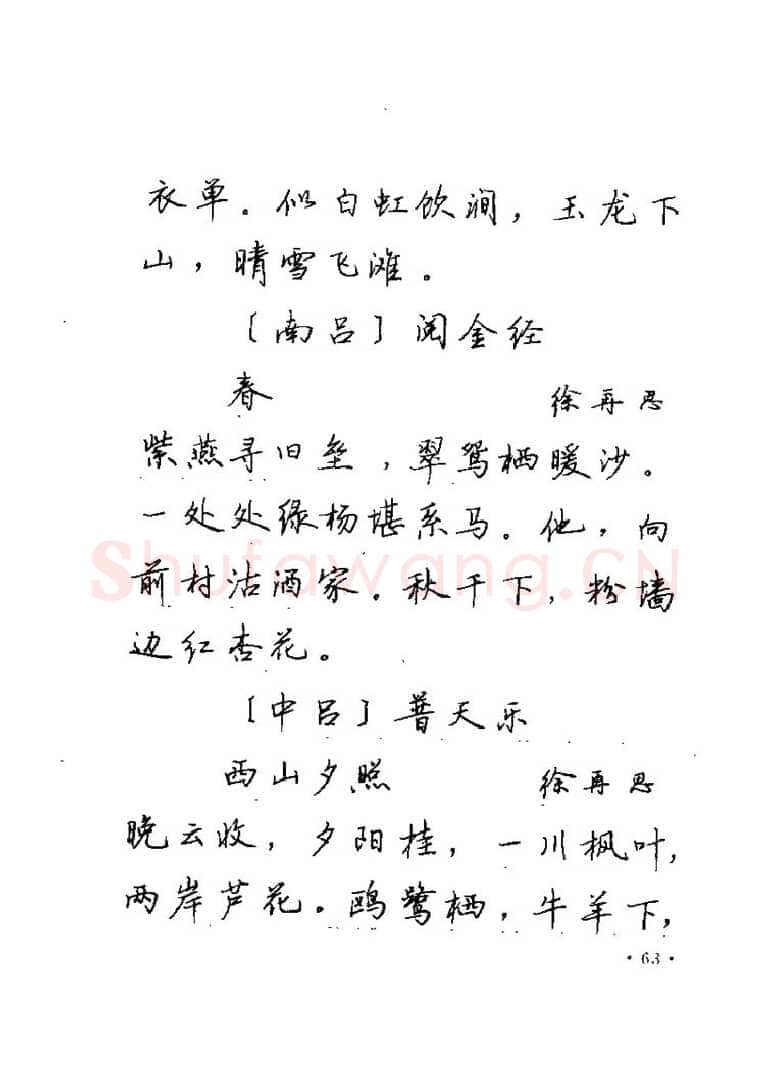 衣单。似白虹饮涧，玉龙下
山，晴雪飞滩。
〔南吕〕阅金经
春 徐再思
紫燕寻旧垒，翠鸳栖暖沙。
一处处绿杨堪系马。他，向
前村沽酒家。秋千下，粉墙
边红杏花。
〔中吕〕普天乐
西山夕照 徐再思
晚云收，夕阳桂，一川枫叶，
两岸芦花。鸥鹭栖，牛羊下，
·63·
Shufawang.CN